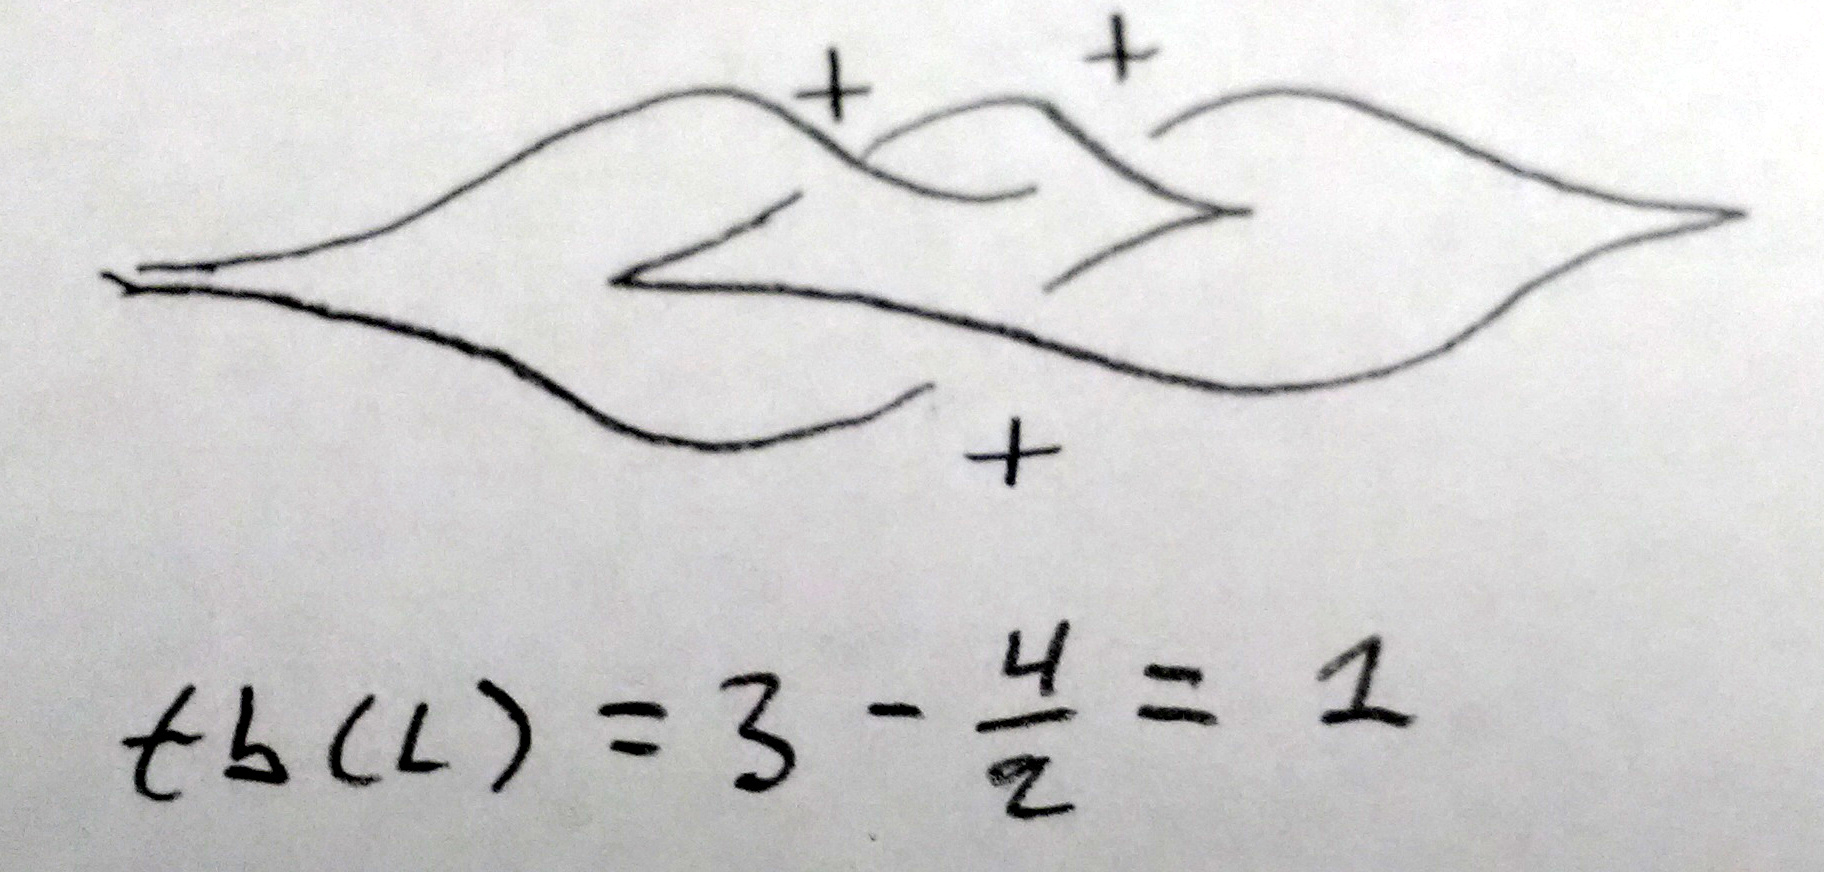 + +
+
tb(L) = 3 - 4/2 = 1